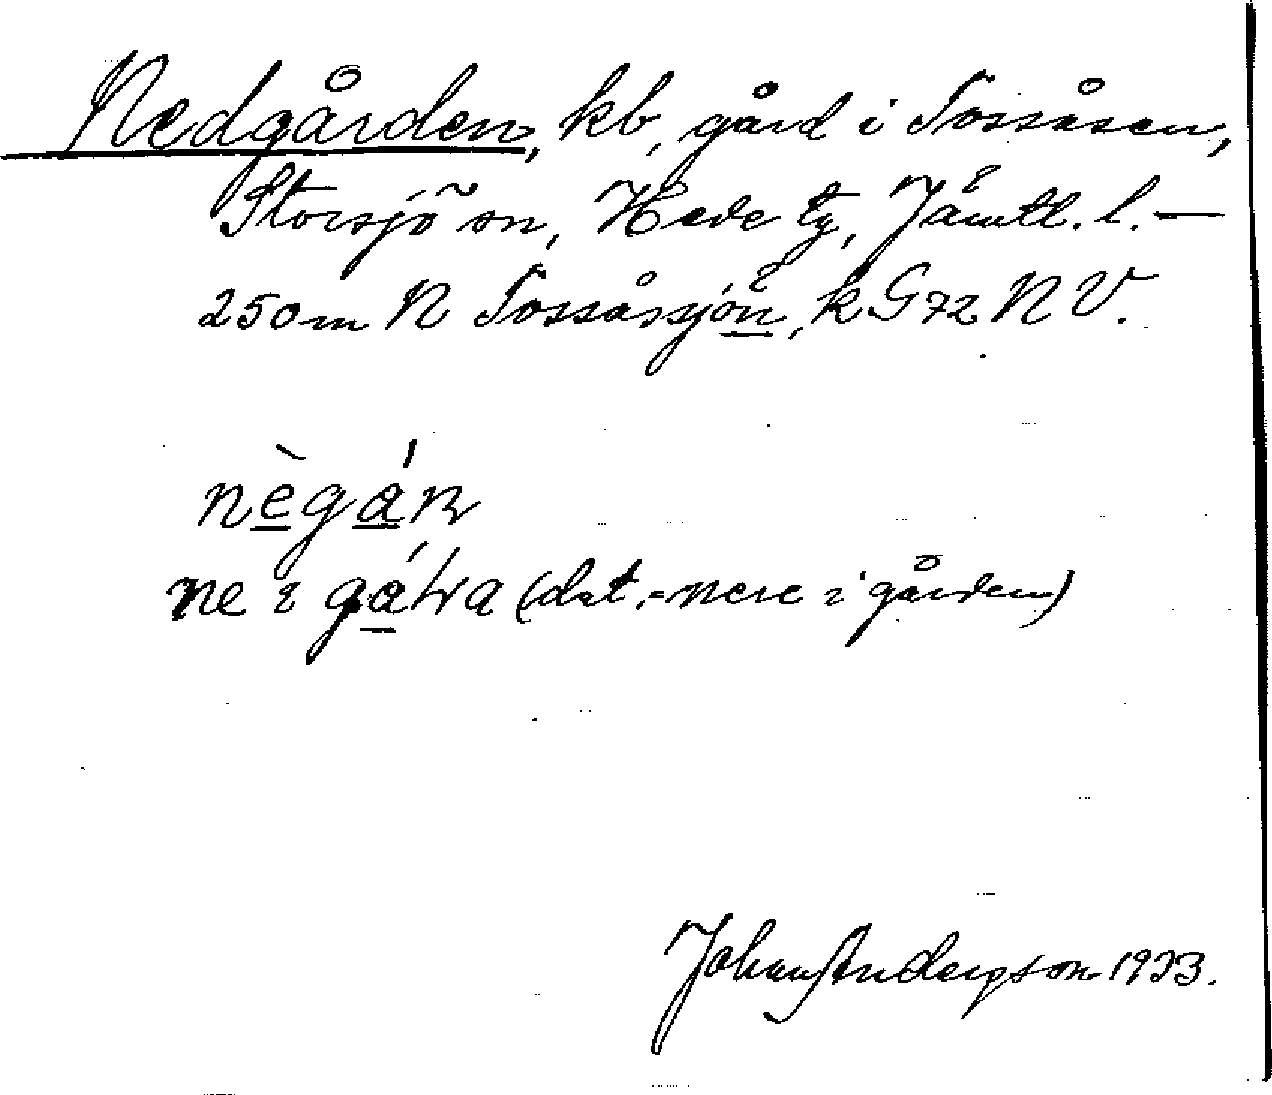 Nedgården, kb, gård i Tossåsen,
Storsjö sn, Hede tg, Jämtl. l. —
250 m N Tossåssjön, k G 72 N V.
nègán
ne i (dat. - nere i gården)
Johan Anderson 1933.